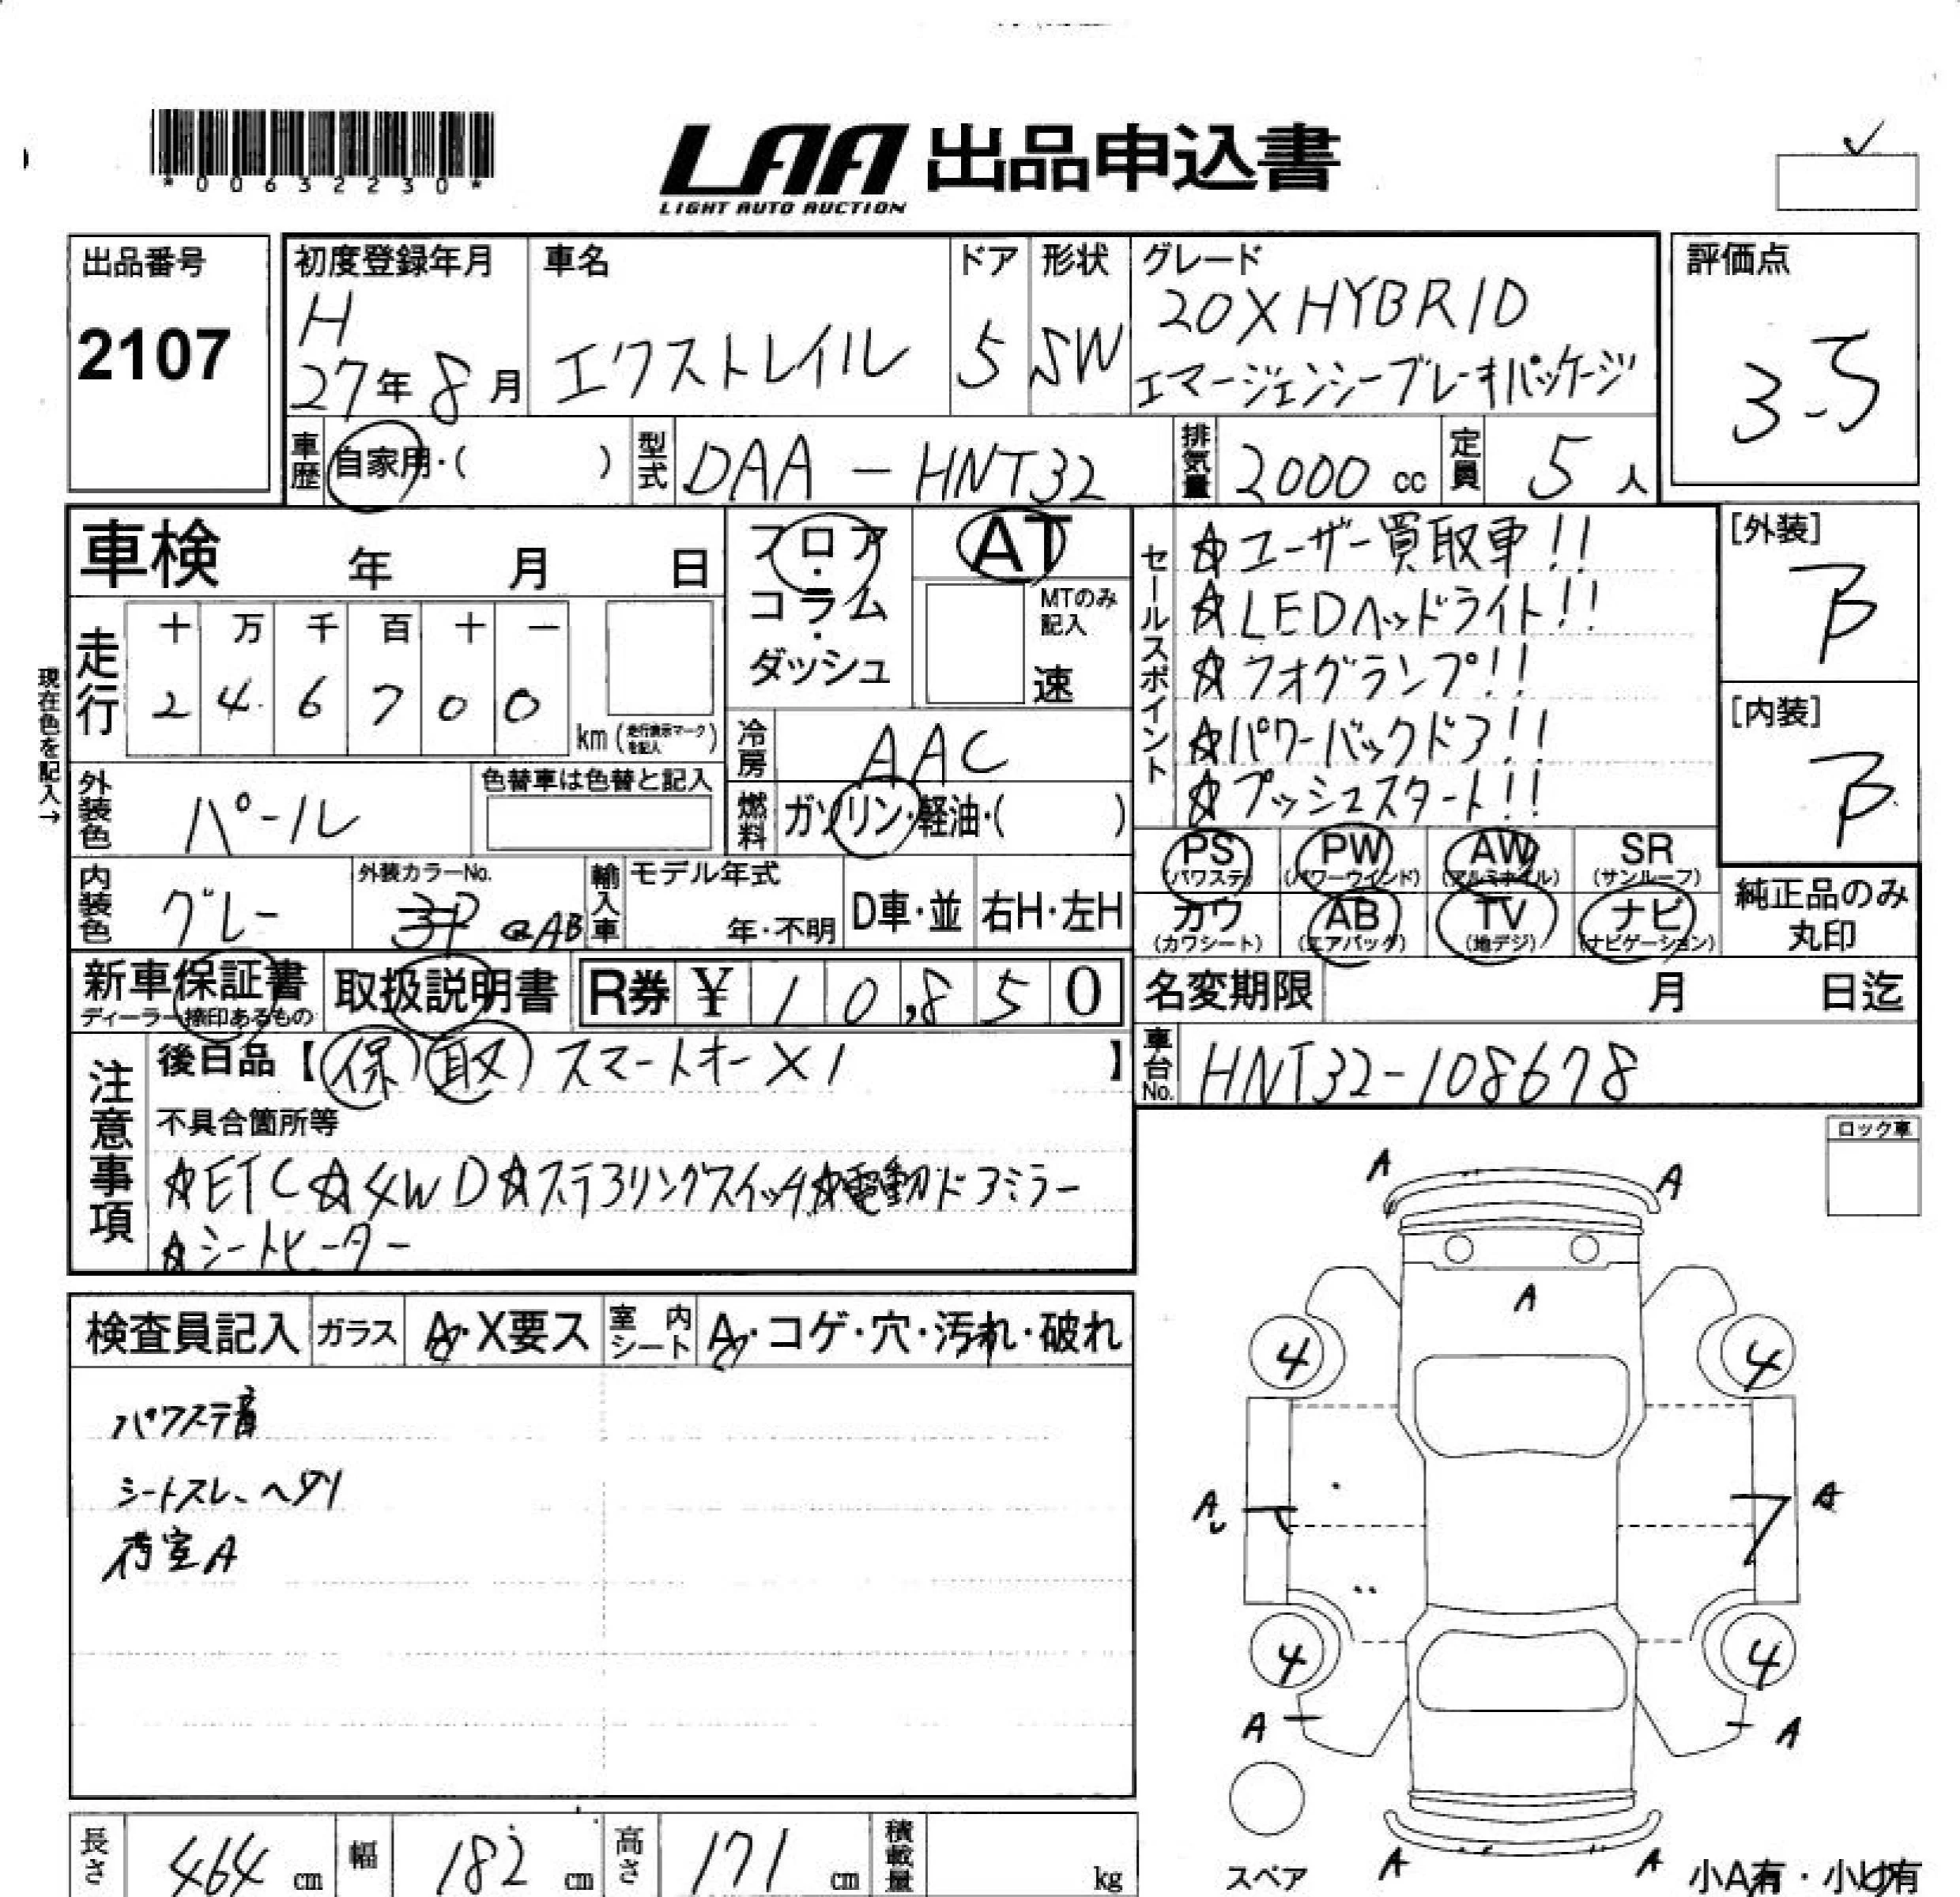 *00632230*
LAA 出品申込書
LIGHT AUTO AUCTION
出品番号
2107
初度登録年月
H
27年8月
車名
エクストレイル
ドア
5
形状
SW
グレード
20X HYBRID
エマージェンシーブレーキパッケージ
評価点
3.5
車歴
自家用・( )
型式
DAA-HNT32
排気量
2000 cc
定員
5人
車検 年 月 日
フロア・コラム・ダッシュ
AT
MTのみ記入
速
セールスポイント
☆ユーザー買取車!!
☆LEDヘッドライト!!
☆フォグランプ!!
☆パワーバックドア!!
☆プッシュスタート!!
[外装]
B
[内装]
B
現在色を記入→
走行
十 万 千 百 十 一
2 4 6 7 0 0
km (走行表示マークを記入)
冷房
AAC
外装色
パール
色替車は色替と記入
燃料
ガソリン・軽油・( )
内装色
グレー
外装カラーNo.
3P QAB
輸入車
モデル年式
年・不明
D車・並
右H・左H
PS
(パワステ)
PW
(パワーウインド)
AW
(アルミホイル)
SR
(サンルーフ)
カワ
(カワシート)
AB
(エアバッグ)
TV
(地デジ)
ナビ
(ナビゲーション)
純正品のみ
丸印
新車保証書
ディーラー捺印あるもの
取扱説明書
R券 ¥ 10,850
名変期限 月 日迄
注意事項
後日品【保 取 スマートキー×1】
車台No.
HNT32-108678
不具合箇所等
☆ETC☆4WD☆ステアリングスイッチ☆電動ドアミラー
☆シートヒーター
ロック車
検査員記入
ガラス
A・X要ス
室内シート
A・コゲ・穴・汚れ・破れ
パワステ音
シートスレ、ヘタリ
荷室A
A A
A
4 4
A A
4 4
A A
スペア
A A
小A有・小U有
長さ
464 cm
幅
182 cm
高さ
171 cm
積載量
kg